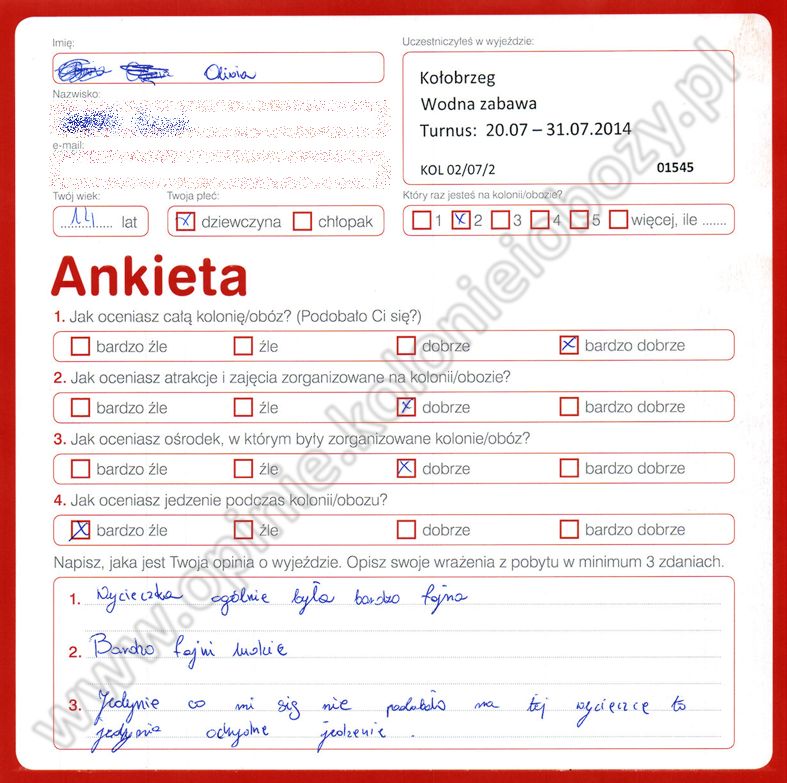 Imię:
Oliwia
Nazwisko:
e-mail:
Twój wiek:
14 lat
Twoja płeć:
dziewczyna chłopak
Uczestniczyłeś w wyjeździe:
Kołobrzeg
Wodna zabawa
Turnus: 20.07 – 31.07.2014
KOL 02/07/2 01545
Który raz jesteś na kolonii/obozie?
1 2 3 4 5 więcej, ile .......
Ankieta
1. Jak oceniasz całą kolonię/obóz? (Podobało Ci się?)
bardzo źle źle dobrze bardzo dobrze
2. Jak oceniasz atrakcje i zajęcia zorganizowane na kolonii/obozie?
bardzo źle źle dobrze bardzo dobrze
3. Jak oceniasz ośrodek, w którym były zorganizowane kolonie/obóz?
bardzo źle źle dobrze bardzo dobrze
4. Jak oceniasz jedzenie podczas kolonii/obozu?
bardzo źle źle dobrze bardzo dobrze
Napisz, jaka jest Twoja opinia o wyjeździe. Opisz swoje wrażenia z pobytu w minimum 3 zdaniach.
1. Wycieczka ogólnie była bardzo fajna
2. Bardzo fajni ludzie
3. Jedynie co mi się nie podobało na tej wycieczce to
ochydne jedzenie.
www.opinie.kolonieiobozy.pl